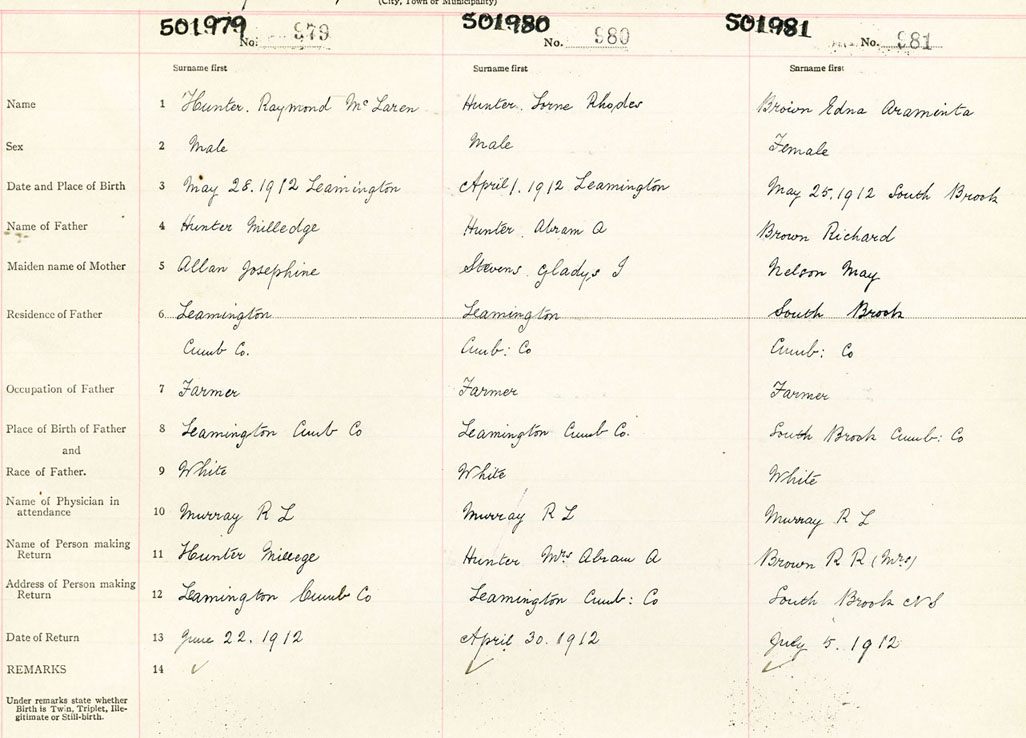 (City, Town or Municipality)
501979 501980 501981
No. 979 No. 980 No. 981
Surname first Surname first Surname first
Name 1 Hunter. Raymond McLaren Hunter. Lorne Rhodes Brown Edna Araminta
Sex 2 Male Male Female
Date and Place of Birth 3 May 28. 1912 Leamington April 1. 1912 Leamington May 25, 1912 South Brook
Name of Father 4 Hunter Milledge Hunter. Abram A Brown Richard
Maiden name of Mother 5 Allan Josephine Stevens. Gladys I Nelson May
Residence of Father 6 Leamington Leamington South Brook
Cumb Co. Cumb: Co Cumb: Co
Occupation of Father 7 Farmer Farmer Farmer
Place of Birth of Father 8 Leamington Cumb Co Leamington Cumb Co. South Brook Cumb: Co
and
Race of Father. 9 White White White
Name of Physician in
attendance 10 Murray R L Murray R L Murray R L
Name of Person making
Return 11 Hunter Millege Hunter Mrs Abram A Brown R R (Mrs)
Address of Person making
Return 12 Leamington Cumb Co Leamington Cumb: Co South Brook N S
Date of Return 13 June 22. 1912 April 30. 1912 July 5. 1912
REMARKS 14 ✓ ✓ ✓
Under remarks state whether
Birth is Twin, Triplet, Ille-
gitimate or Still-birth.